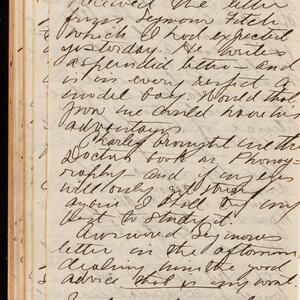 received the letter
from Seymour Fitch
which I had expected
yesterday. He writes
a splendid letter - and
is in every respect a
model boy. Would that
from me could have his
advantages.
Charley brought me the
Doctor's book on Phonog-
raphy - and if my eyes
will only get strong
again I shall try my
best to study it.
Answered Seymour's
letter in the afternoon
giving him the good
advice that is my wont